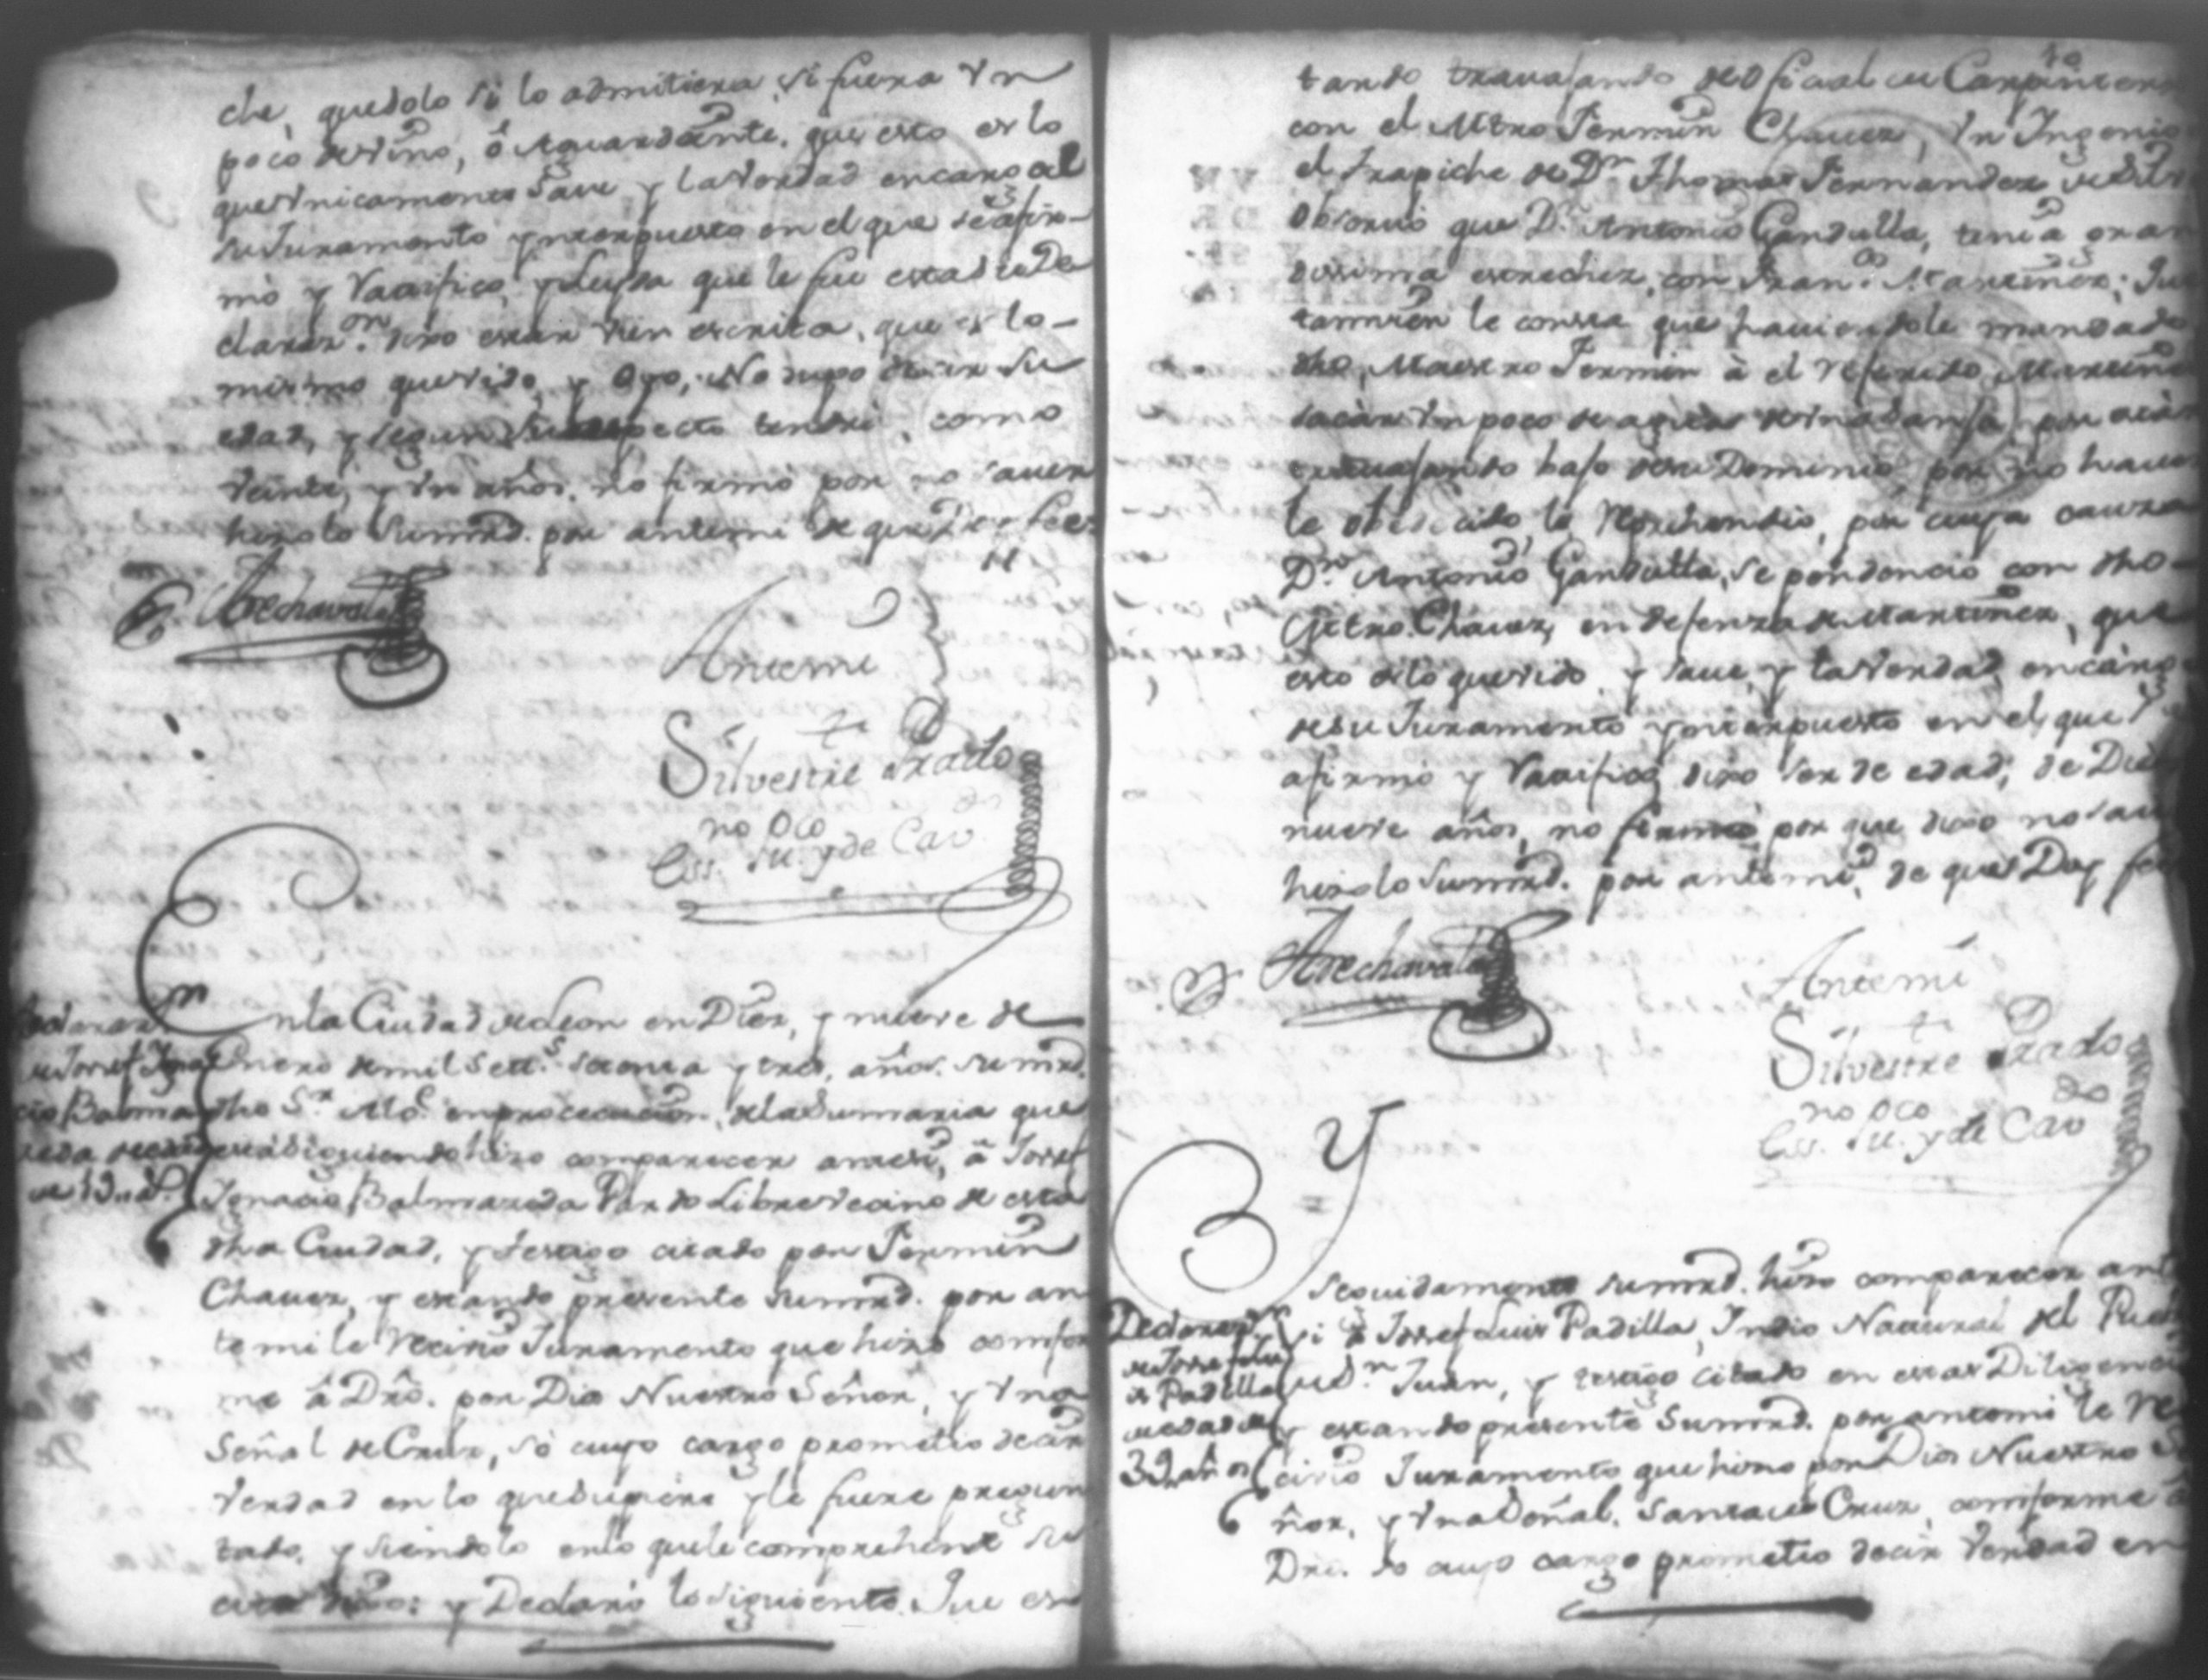 che, quedolo si lo admitiera, si fuera Vn
poco de vino, ô Aguardiente. que esto es lo
que Vnicamente Save y la Verdad en cargo de
su Juramento ynterpuesto en el que se afir-
mò y Ratifico, y Leyda que le fue esta su De
claraz.on dixo estar vien escrita, que es lo-
mismo que Vido, y Oyo, No supo decir su
edad, y segun su aspecto tendrà, como
Veinte, y Vn años. no firmò por no saver
hizolo Sumrd. por antemi de que Doy fee=
Arechavala
Antemi
Silvestre Prado
no pco
Ess. Su. y de Cavdo
En la Ciudad de Leon en Diez, y nueve de
Declaraz.
de Josef Igna
cio Balma
seda
de 19. a.s
Enero de mil Sett.s setenta y tres, años. Sumrd.
dho S.r en prosecucion, de la Sumaria que
está siguiendo hizo comparecer antesi, â Josef
Ignacio Balmaseda Pardo Libre Vecino de esta
dha Ciudad, y testigo citado por Fermin
Chavez, y estando presente Sumrd. por an
temi le Recivio Juramento que hizo comfor
me â Dro. por Dios Nuestro Señor, y Vna
Señal de Cruz, só cuyo cargo prometio decir
Verdad en lo que Supiere y le fuere pregun
tado, y siendolo en lo que le comprehende su
cita Dixo: y Declarò lo siguiente. Que es
40
tando travajando de Oficial de Carpintero
con el Mtro Fermin Chavez, Vn Ingenio
el trapiche de D.n Thomas Fernandez
Observò que D.n Antonio Gandulla, tenia gran
dissima estrechez, con Fran.co Martinez; Que
tamvien le consta que haviendole mandado
dho, Maestro Fermin à el referido Martinez
sacar Vn poco de agua
travajando bajo de su Dominio por no haver
le obedecido, le Reprehendio, por cuya causa
D.n Antonio Gandulla, se pendencio con dho-
Mtro. Chavez, en defenza de Martinez, que
esto es lo que vido, y Save, y la Verdad en cargo
de su Juramento ynterpuesto en el que s
afirmò y Ratifico, dixo ser de edad, de Diez
nueve años, no firmò por que dixo no sav
hizolo Sumrd. por antemi, de que Doy fee
Arechavala
Antemi
Silvestre Prado
no pco
Ess. Su. y de Cavdo
Y
Seguidamente Sumrd. hizo comparecer ant
Declaraz.
de Josef Lu
is Padilla
de edad de
39 años
si â Josef Luis Padilla, Indio Natural del Pueb
de S.n Juan, y testigo citado en estas Diligenci
y estando presente Sumrd. por antemi le Re
civio Juramento que hizo por Dios Nuestro Se
ñor, y Vna Señal. Santa de Cruz, comforme â
Dro. so cuyo cargo prometio decir Verdad en